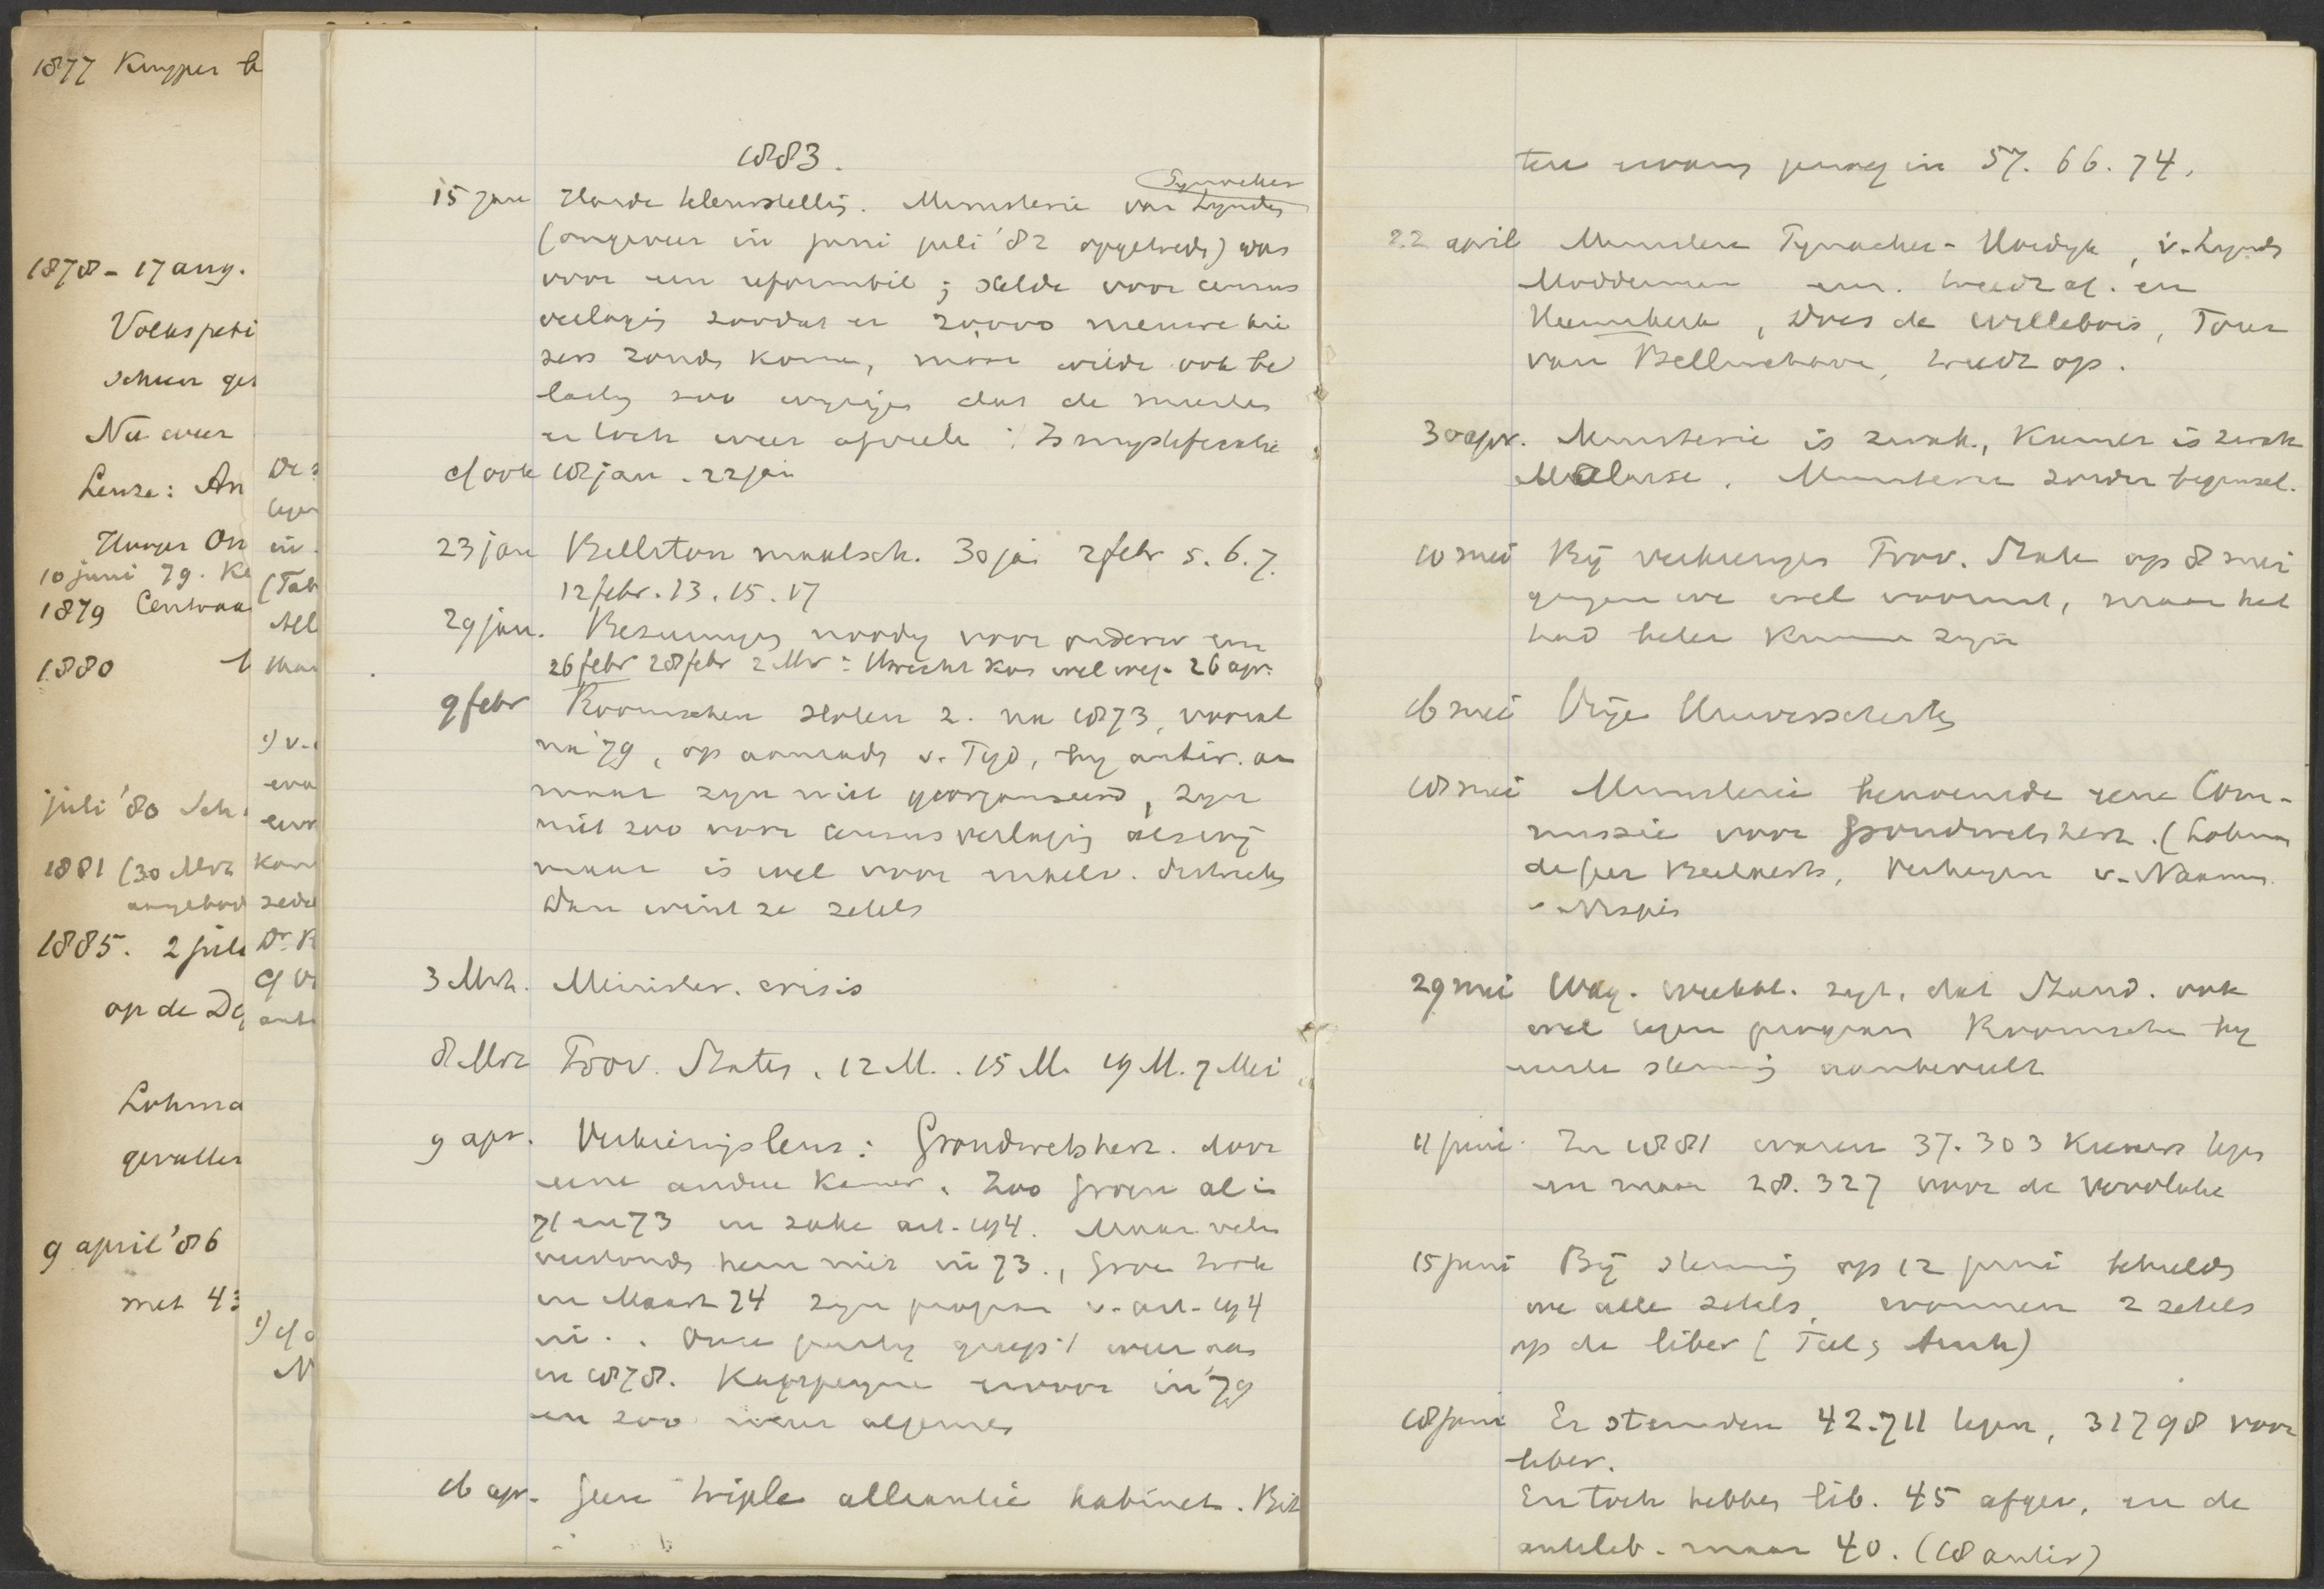 1877 Kuyper b
1878 - 17 aug.
Volkspeti
Nu weer
Leuze: An
10 juni 79. Ke
1879 Centraa
1880
juli '80 Sch
1881 (30 Mrt
aangebod
1885. 2 juli
op de De
Lohma
gevallen
9 april '86
met 43
1883.
15 jan Harde teleurstellig. Ministerie van Lynden Tynacker
(ongeveer in juni juli '82 opgetreden) was
voor een reformbil; stelde voor census
verlagig zoodat er 20,000 nieuwe kie
zers zouden komen, maar wilde ook be
lastg zoo wyzigen dat de meesten
er toch weer afvielen: Is mystificatie
cf ook 18 jan. 22 jan
23 jan Bellston maatsch. 30 ja 2 febr 5. 6. 7.
12 febr. 13. 15. 17
29 jan. Bezuinigg noodig voor onderw en
26 febr 28 febr 2 Mr: Utrecht kos wel weg. 26 apr.
9 febr Roomschen sloten z. na 1873, vooral
na '79, op aanraden v. Tyd, by antir. an
maar zyn niet georganiseerd, zyn
niet zoo voor censusverlagig als wij
maar is wel voor enkelv. districten
dan wint ze zetels
3 Mrt. Minister. crisis
8 Mrt Prov. Staten. 12 M. . 15 M. 19 M. 7 Mei
9 apr. Verkiezingsleus: Grondwetsherz. door
eene andere Kamer. Zoo Groen al in
71 en 73 in zake art. 194. Maar velen
verstonden hem niet in 73., Groen trok
in Maart 74 zyn program v. art. 194
in. . Onze party greep 't weer aan
in 1878. Kappeyne ervoor in '79
en zoo weer algemeen
16 apr. Geen triple alliantie kabinet. Bit
tere ervarg gereg in 57. 66. 74.
22 april Ministers Tynacker - Hordyk, v. Lynden
Modderman enz. treedt af. en
Heemskerk, Does de Willebois, Tour
van Bellinchave, treedt op.
30 apr. Ministerie is zwak, Kamer is zwak
Malaise. Ministerie zonder beginsel.
10 mei Bij verkiezgen Prov. State op 8 mei
gingen we wel vooruit, maar het
had beter kunnen zyn
16 mei Vrije Universiteit
18 mei Ministerie benoemde eene Com-
missie voor Grondwetsherz. (Lohman
de Geer Beelaerts, Verhagen v. Naamen
29 mei Wag. weekbl. zegt, dat Stand. ook
wel tegen program Roomsche by
eerste stemmig aanbeveelt
11 juni In 1881 waren 37.303 kiezers tegen
en maar 28.327 voor de
15 juni Bij stemmig op 12 juni behielden
we alle zetels, wonnen 2 zetels
op de liber (Tiel, Amh)
18 juni Er stemden 42.711 tegen, 31798 voor
liber.
En toch hebben lib. 45 afgev. en de
antilib. maar 40. (18 antir)